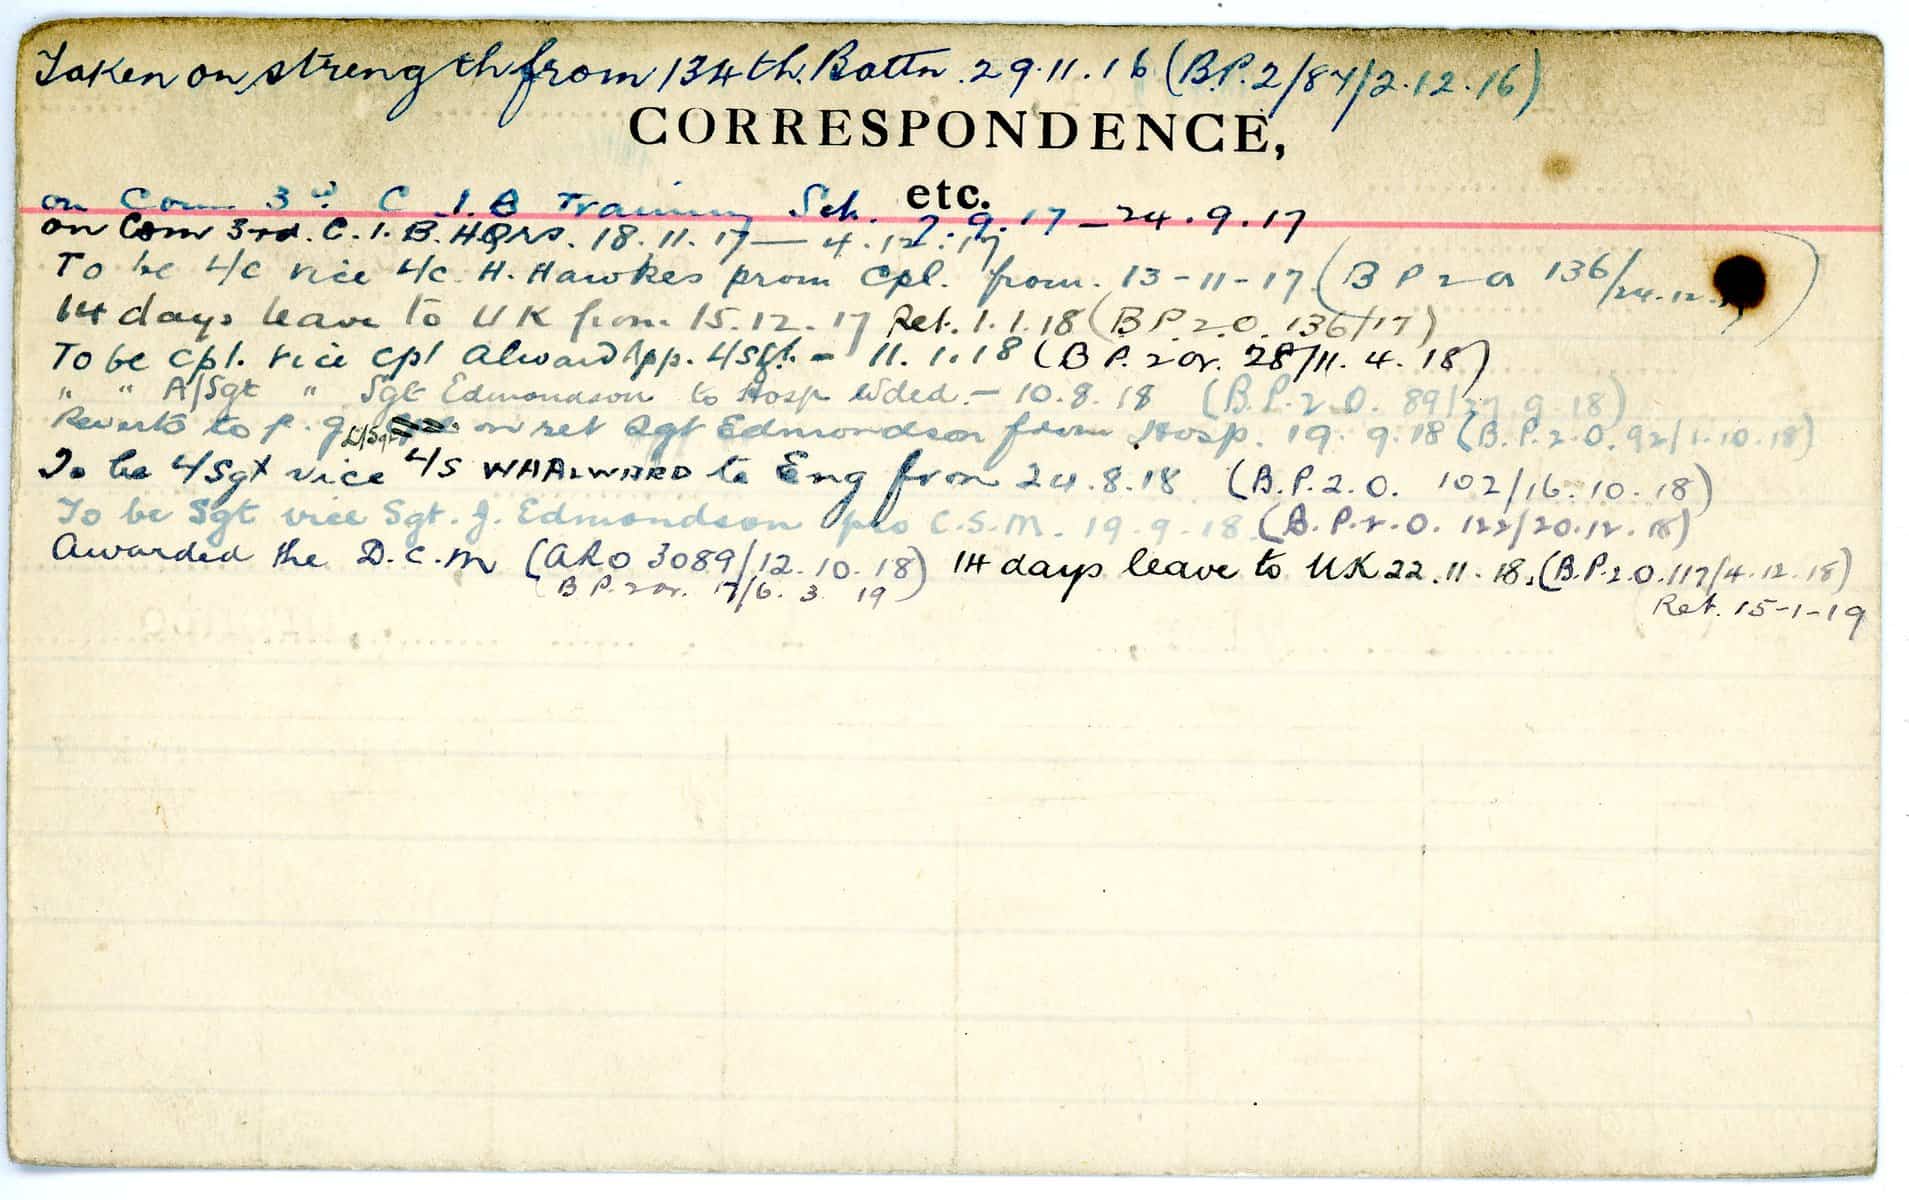 Taken on strength from 134th. Battn 29.11.16 (B.P.2/87/2.12.16)
CORRESPONDENCE,
etc.
on Com 3rd C.I.B Training Sch. 7.9.17 - 24.9.17
on Com 3rd. C.I.B. HQrs. 18.11.17 - 4.12.17
To be L/c vice L/c. H. Hawkes prom Cpl. from. 13-11-17 (B P 2 or 136/24.12.
14 days leave to UK from 15.12.17 Ret. 1.1.18 (B.P.2.O. 136/17)
To be Cpl. vice Cpl Alward App. L/Sgt. - 11.1.18 (B P. 2 or. 28/11.4.18)
" " A/Sgt " Sgt Edmondson to Hosp Wded. - 10.8.18 (B.P.2.O. 89/27.9.18)
Reverts to P. g L/Sgt on ret Sgt Edmondson from Hosp. 19.9.18 (B.P.2.O. 92/1.10.18)
To be L/Sgt vice L/S WHALWARD to Eng from 24.8.18 (B.P.2.O. 102/16.10.18)
To be Sgt vice Sgt. J. Edmondson pro C.S.M. 19.9.18 (B.P.2.O. 122/20.12.18)
Awarded the D.C.M (ARO 3089/12.10.18) 14 days leave to UK 22.11.18. (B.P.2.O.117/4.12.18)
B P. 2 or. 17/6.3 19) Ret. 15-1-19